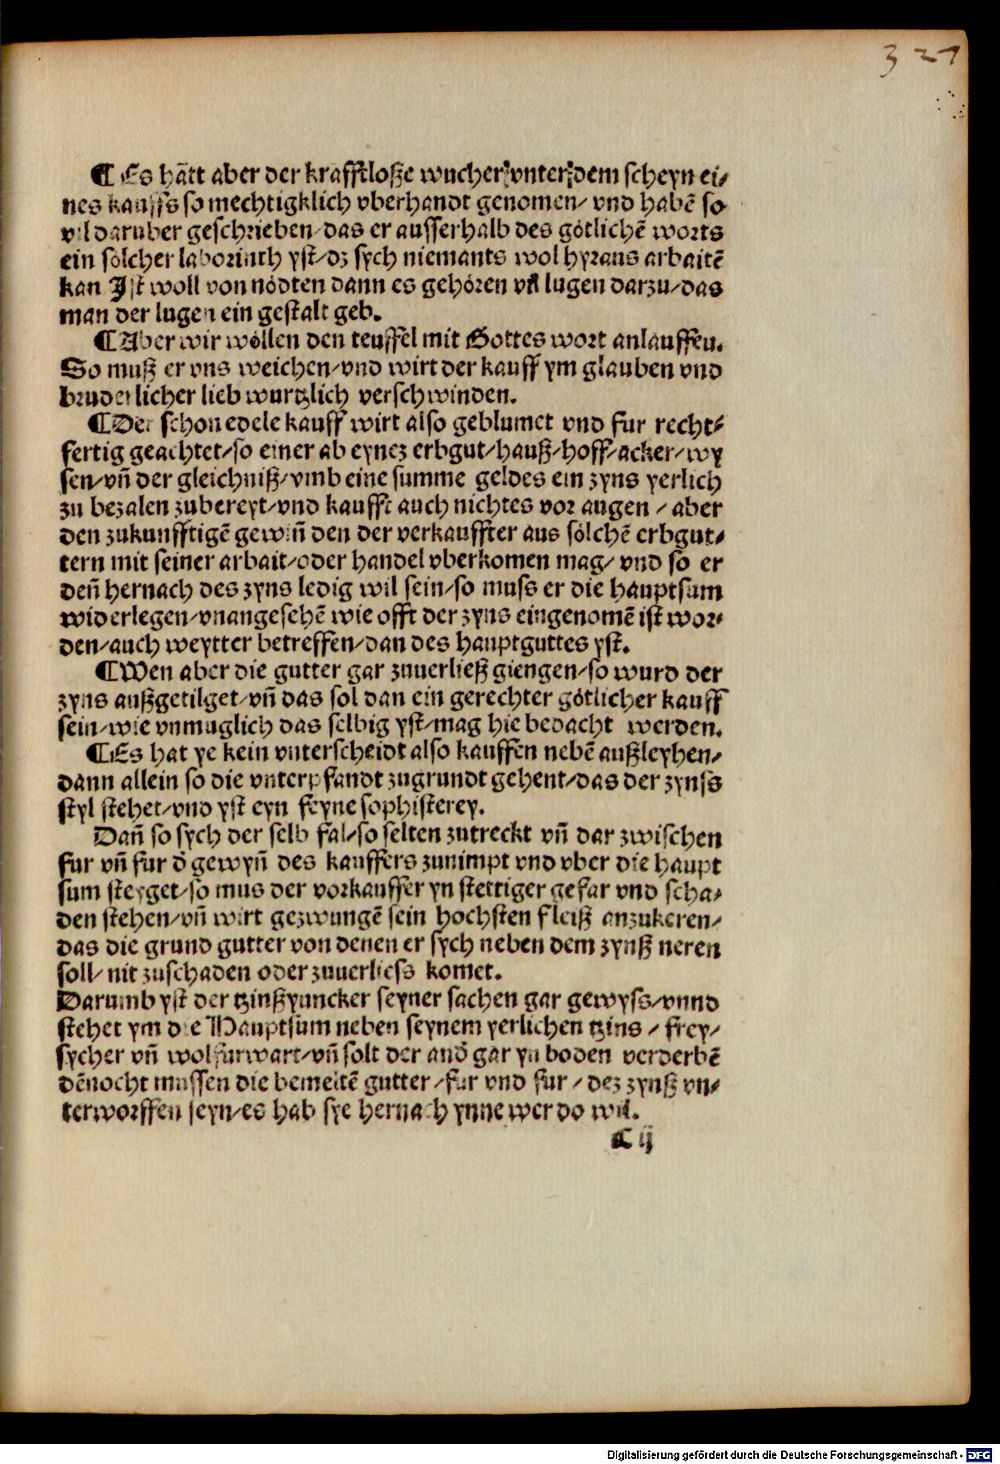 321
¶ Es hātt aber der krafftloße wucher vnter dem scheyn ei⸗
nes kauffs so mechtigklich vberhandt genomen/ vnd habē so
vil daruber geschrieben/das er ausserhalb des götlichē worts
ein solcher laborinth yst/dz sych niemants wol hyraus arbaitē
kan Ist woll von nödten dann es gehören vil lugen darzu/das
man der lugen ein gestalt geb.
¶Aber wir wöllen den teuffel mit Gottes wort anlauffen.
So muß er vns weichen/vnd wirt der kauff ym glauben vnd
bruderlicher lieb wurtzlich verschwinden.
¶Der schon edele kauff wirt also geblumet vnd fur recht⸗
fertig geachtet/so einer ab eynez erbgut/hauß/hoff/acker/wy
sen/vn̄ der gleichniß/vmb eine summe geldes ein zyns yerlich
zu bezalen zubereyt/vnd kaufft auch nichtes vor augen / aber
den zukunfftigē gewin̄ den der verkauffter aus sölchē erbgut⸗
tern mit seiner arbait/oder handel vberkomen mag/ vnd so er
den̄ hernach des zyns ledig wil sein/so muss er die hauptsum
widerlegen/vnangesehē wie offt der zyns eingenomē ist wor⸗
den/auch weytter betreffen/dan des hauptguttes yst.
¶Wen aber die gutter gar zuuerließ giengen/so wurd der
zyns außgetilget/vn̄ das sol dan ein gerechter götlicher kauff
sein/wie vnmuglich das selbig yst/mag hie bedacht werden.
¶Es hat ye kein vnterscheidt also kauffen nebē außleyhen/
dann allein so die vnterpfandt zugrundt gehent/das der zynss
styl stehet/vnd yst eyn feyne sophisterey.
Dan̄ so sych der selb fal/so selten zutreckt vn̄ dar zwischen
fur vn̄ fur d̄ gewyn̄ des kauffers zunimpt vnd vber die haupt
sum steyget/so mus der vorkauffer yn stettiger gefar vnd scha⸗
den stehen/vn̄ wirt gezwungē sein hochsten fleiß anzukeren/
das die grund gutter von denen er sych neben dem zynß neren
soll/ nit zuschaden oder zuuerliess komet.
Darumb yst der tzinßyuncker seyner sachen gar gewyss/vnnd
stehet ym die Hauptsum neben seynem yerlichen tzins / frey/
sycher vn̄ wol furwart/vn̄ solt der and̄ gar yn boden verderbē
dēnocht mussen die bemeltē gutter/fur vnd fur / dez zynß vn⸗
terworffen seyn/es hab sye hernach ynne wer do wil.
C ij
Digitalisierung gefördert durch die Deutsche Forschungsgemeinschaft - DFG